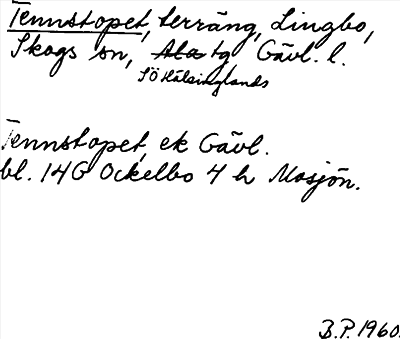 Tennstopet, terräng, Lingbo,
Skogs sn, Ala tg, Gävl. l.
SöHälsinglands
Tennstopet, ek Gävl.
bl. 14G Ockelbo 4 h Mosjön.
B.P. 1960.